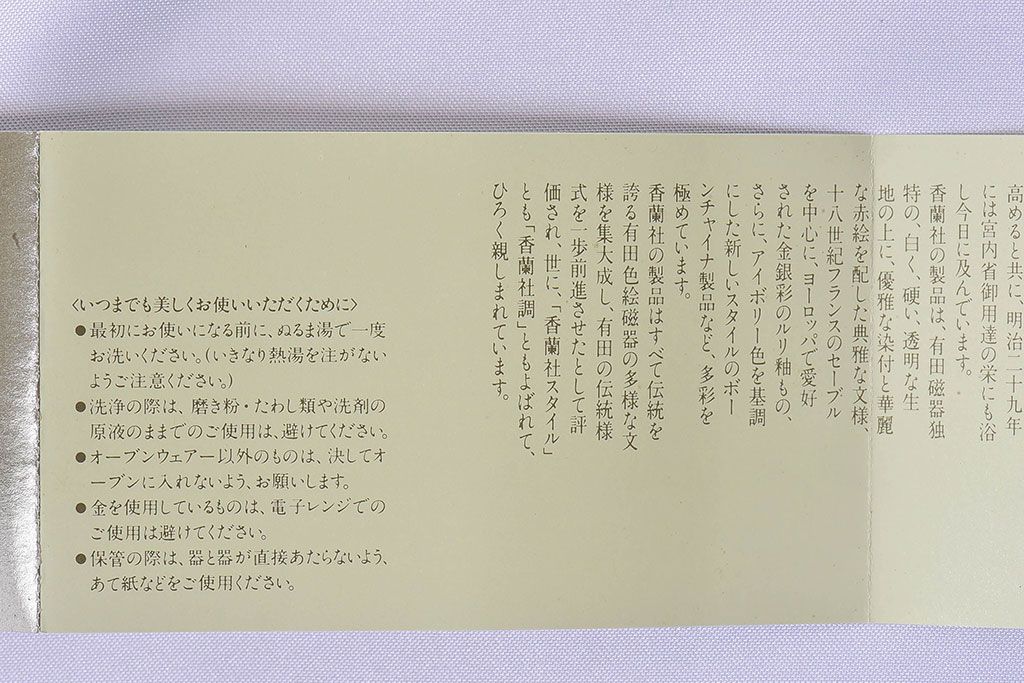 高めると共に、明治二十九年
には宮内省御用達の栄にも浴
し今日に及んでいます。
香蘭社の製品は、有田磁器独
特の、白く、硬い、透明な生
地の上に、優雅な染付と華麗
な赤絵を配した典雅な文様、
十八世紀フランスのセーブル
を中心に、ヨーロッパで愛好
された金銀彩のルリ釉もの、
さらに、アイボリー色を基調
にした新しいスタイルのボー
ンチャイナ製品など、多彩を
極めています。
香蘭社の製品はすべて伝統を
誇る有田色絵磁器の多様な文
様を集大成し、有田の伝統様
式を一歩前進させたとして評
価され、世に、「香蘭社スタイル」
とも「香蘭社調」ともよばれて、
ひろく親しまれています。
〈いつまでも美しくお使いいただくために〉
●最初にお使いになる前に、ぬるま湯で一度
お洗いください。(いきなり熱湯を注がない
ようご注意ください。)
●洗浄の際は、磨き粉・たわし類や洗剤の
原液のままでのご使用は、避けてください。
●オーブンウェアー以外のものは、決してオ
ーブンに入れないよう、お願いします。
●金を使用しているものは、電子レンジでの
ご使用は避けてください。
●保管の際は、器と器が直接あたらないよう、
あて紙などをご使用ください。